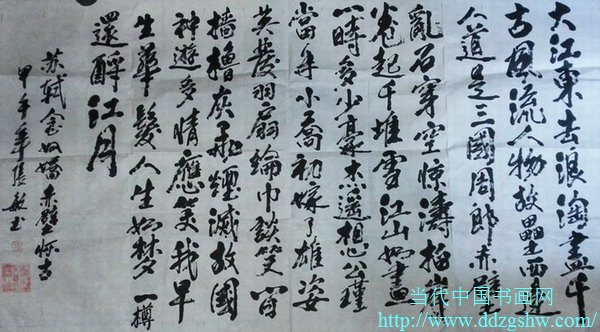 大江東去浪淘盡千
古風流人物故壘西邊
人道是三國周郎赤壁
亂石穿空惊濤拍岸
卷起千堆雪江山如畫
一時多少豪杰遥想公瑾
當年小喬初嫁了雄姿
英發羽扇綸巾談笑間
檣櫓灰飛煙滅故國
神遊多情應笑我早
生華髮人生如夢一樽
還酹江月
苏軾念奴嬌赤壁怀古
甲午年張敏书
当代中国书画网
http://www.ddzgshw.com/